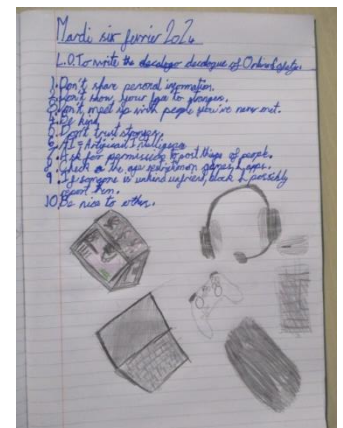 Mardi six fevrier 2024
L.O. To write the decalogo decalogue of Online Safety.
1. Don't share personal information.
2. Don't show your face to strangers.
3. Don't meet up with people you've never met.
4. Be kind
5. Don't trust strangers.
6. AI = Artificial Intelligence
7. Ask for permission to post things of people.
8. Check on the age restriction on games & apps.
9. If someone is unkind unfriend, block & possibly
report them.
10. Be nice to others.